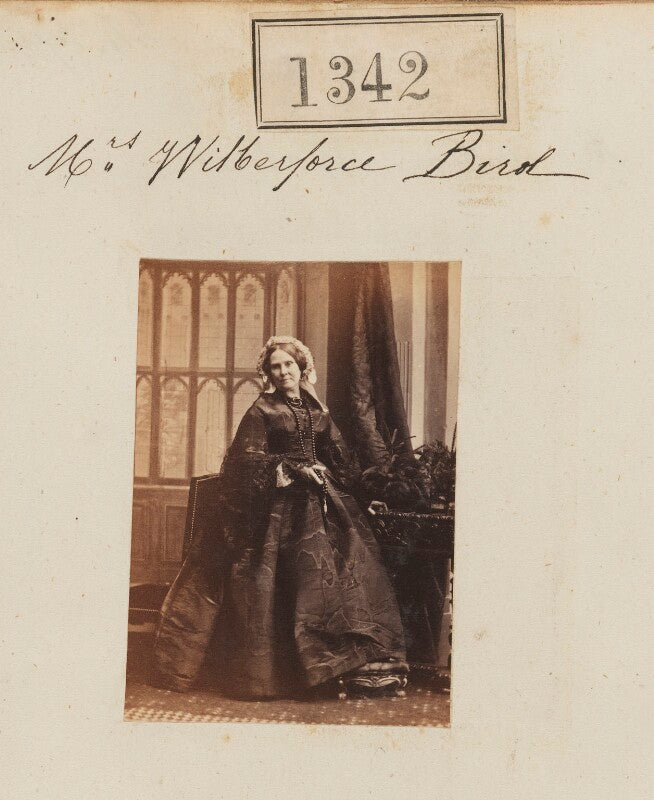 1342
Mrs Wilberforce Bird